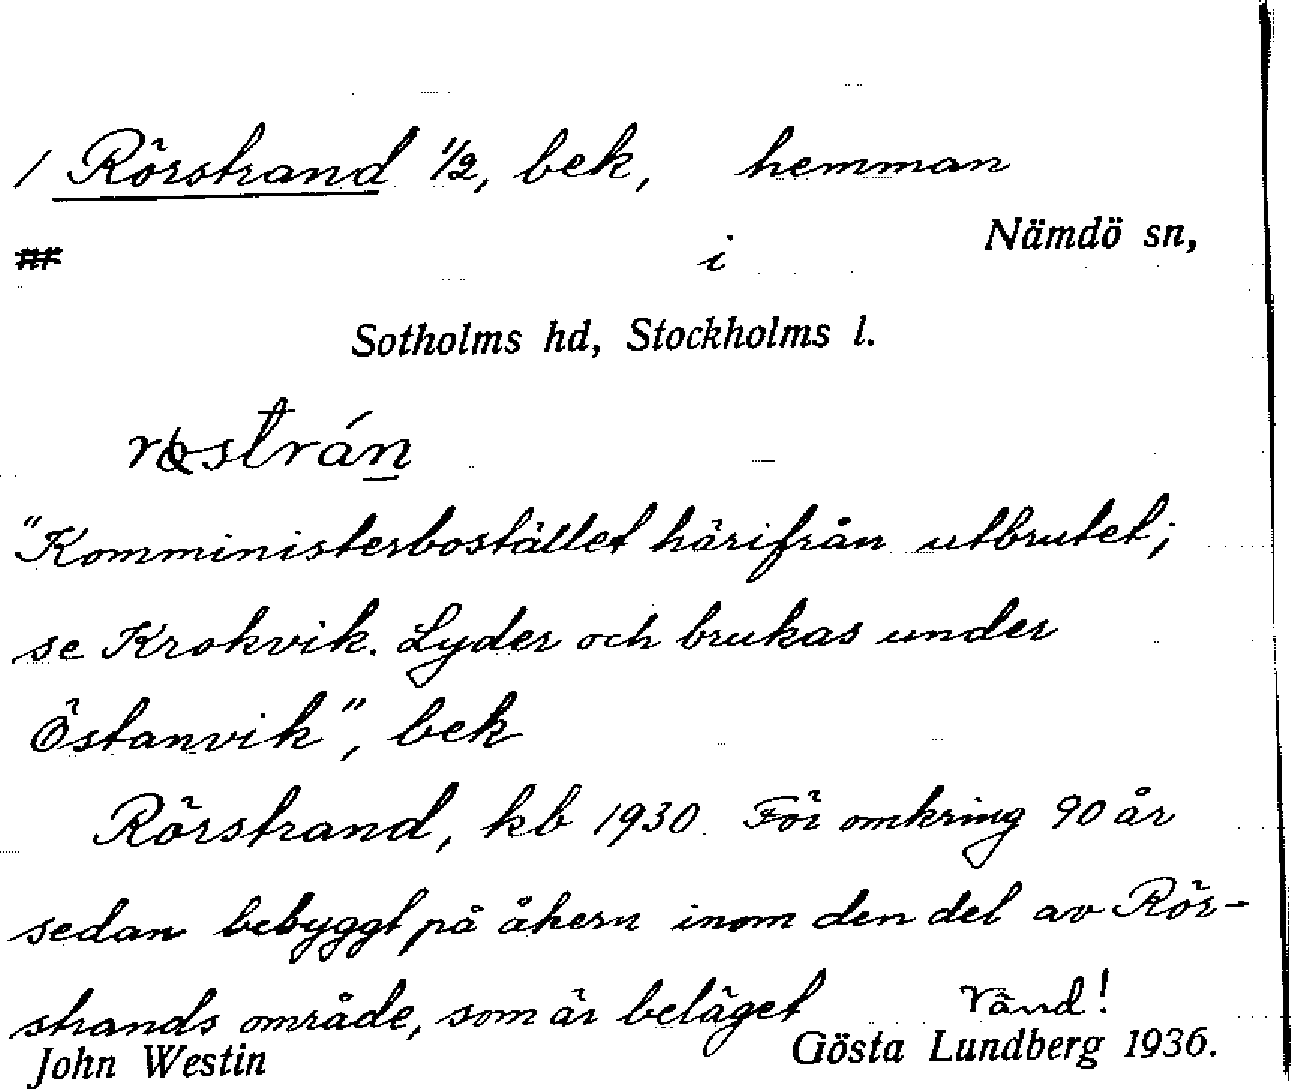 / Rörstrand 1/2, bek, hemman
## i Nämdö sn,
Sotholms hd, Stockholms l.
"Komministerbostället härifrån utbrutet;
se Krokvik. Lyder och brukas under
Östanvik", bek
Rörstrand, kb 1930. För omkring 90 år
sedan bebyggt på åkern inom den del av Rör-
strands område, som är beläget Vänd!
John Westin Gösta Lundberg 1936.